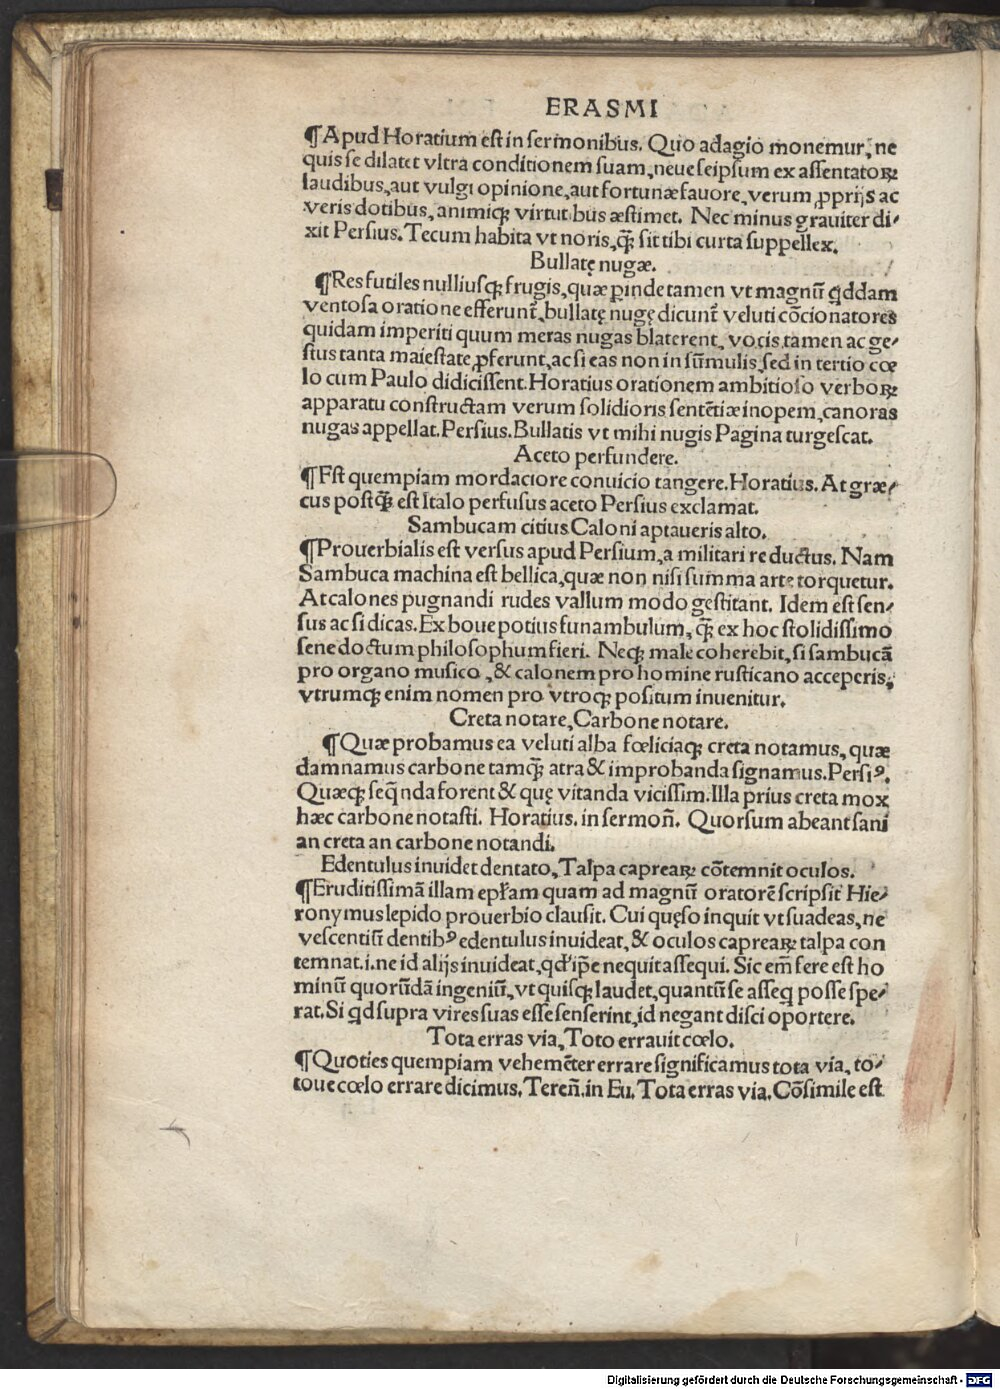 ERASMI
¶Apud Horatium est in sermonibus. Quo adagio monemur, ne
quis se dilatet vltra conditionem suam, neue seipsum ex assentatoꝝ
laudibus, aut vulgi opinione, aut fortunæ fauore, verum ꝓprijs ac
veris dotibus, animiqꝫ virtutibus æstimet. Nec minus grauiter di/
xit Persius. Tecum habita vt noris, qꝫ̃ sit tibi curta suppellex.
Bullatę nugæ.
¶Res futiles nulliusqꝫ frugis, quæ ꝑinde tamen vt magnũ qddam
ventosa oratione efferunt̃, bullatę nugę dicunt̃ veluti cõcionatores
quidam imperiti quum meras nugas blaterent, vocis tamen ac ge/
stus tanta maiestate ꝓferunt, ac si eas non in sũmulis, sed in tertio cœ
lo cum Paulo didicissent. Horatius orationem ambitioso verboꝝ
apparatu constructam verum solidioris sentẽtiæ inopem, canoras
nugas appellat. Persius. Bullatis vt mihi nugis Pagina turgescat.
Aceto perfundere.
¶Est quempiam mordaciore conuicio tangere. Horatius. At græ/
cus postqꝫ̃ est Italo perfusus aceto Persius exclamat.
Sambucam citius Caloni aptaueris alto.
¶Prouerbialis est versus apud Persium, a militari re ductus. Nam
Sambuca machina est bellica, quæ non nisi summa arte torquetur.
At calones pugnandi rudes vallum modo gestitant. Idem est sen/
sus ac si dicas. Ex boue potius funambulum, qꝫ̃ ex hoc stolidissimo
sene doctum philosophum fieri. Neqꝫ male coherebit, si sambucã
pro organo musico, & calonem pro homine rusticano acceperis,
vtrumqꝫ enim nomen pro vtroqꝫ positum inuenitur.
Creta notare, Carbone notare.
¶Quæ probamus ea veluti alba fœliciaqꝫ creta notamus, quæ
damnamus carbone tamqꝫ̃ atra & improbanda signamus. Persiꝰ.
Quæqꝫ seq̃nda forent & quę vitanda vicissim. Illa prius creta mox
hæc carbone notasti. Horatius. in sermoñ. Quorsum abeant sani
an creta an carbone notandi.
Edentulus inuidet dentato, Talpa capreaꝝ cõtemnit oculos.
¶Eruditissimã illam epl̃am quam ad magnũ oratorẽ scripsit Hie/
ronymus lepido prouerbio clausit. Cui quęso inquit vt suadeas, ne
vescentiũ dentibꝰ edentulus inuideat, & oculos capreaꝝ talpa con
temnat. i. ne id alijs inuideat, qd' ip̃e nequit assequi. Sic em̃ fere est ho
minũ quorũdã ingeniũ, vt quisqꝫ laudet, quantũ se asseq posse spe/
rat. Si qd supra vires suas esse senserint, id negant disci oportere.
Tota erras via, Toto errauit cœlo.
¶Quoties quempiam vehemẽter errare significamus tota via, to/
toue cœlo errare dicimus. Tereñ. in Eu. Tota erras via. Cõsimile est
Digitalisierung gefördert durch die Deutsche Forschungsgemeinschaft - DFG